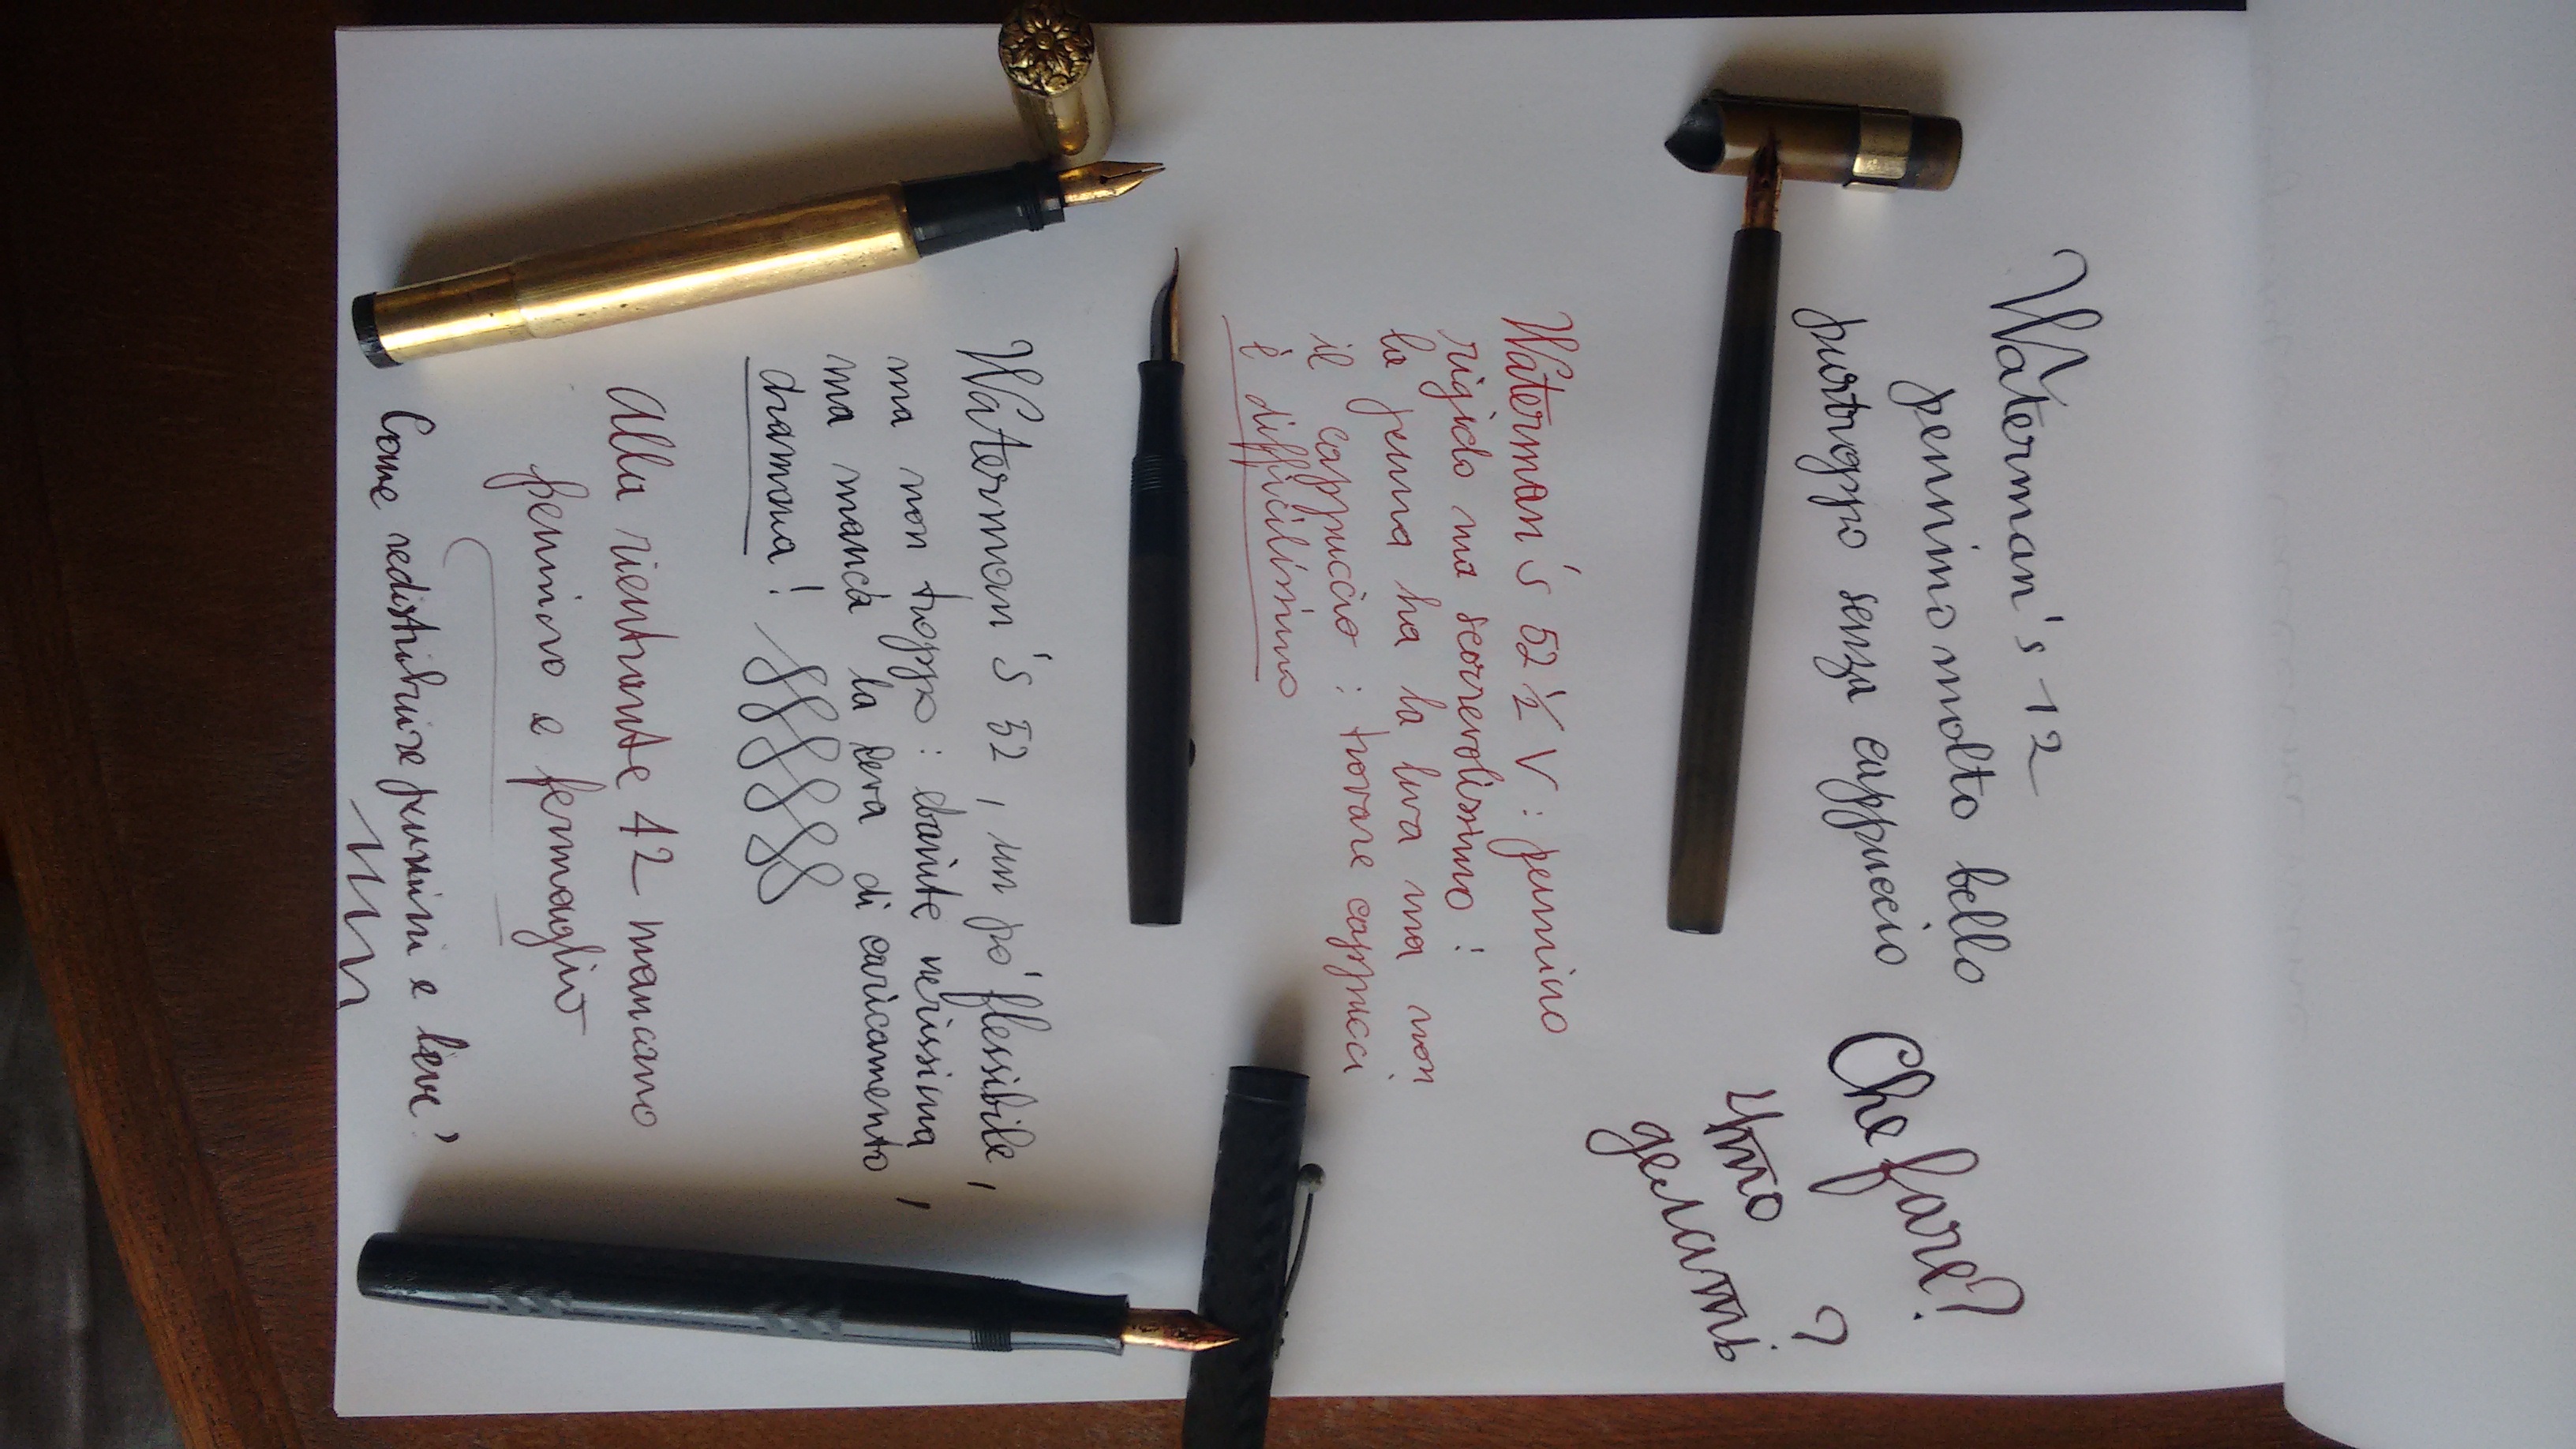 Waterman's 12
pennino molto bello
purtroppo senza cappuccio
Che fare?
Что
делать ?
Waterman's 52 ½ V : pennino
rigido ma scorrevolissimo !
la penna ha la leva ma non
il cappuccio : trovare cappucci
è difficilissimo
Waterman's 52 , un pò flessibile,
ma non troppo : ebanite nerissima,
ma manca la leva di caricamento,
dramma !
Alla rientrante 42 mancano
pennino e fermaglio
Come redistribuire pennini e leve ?